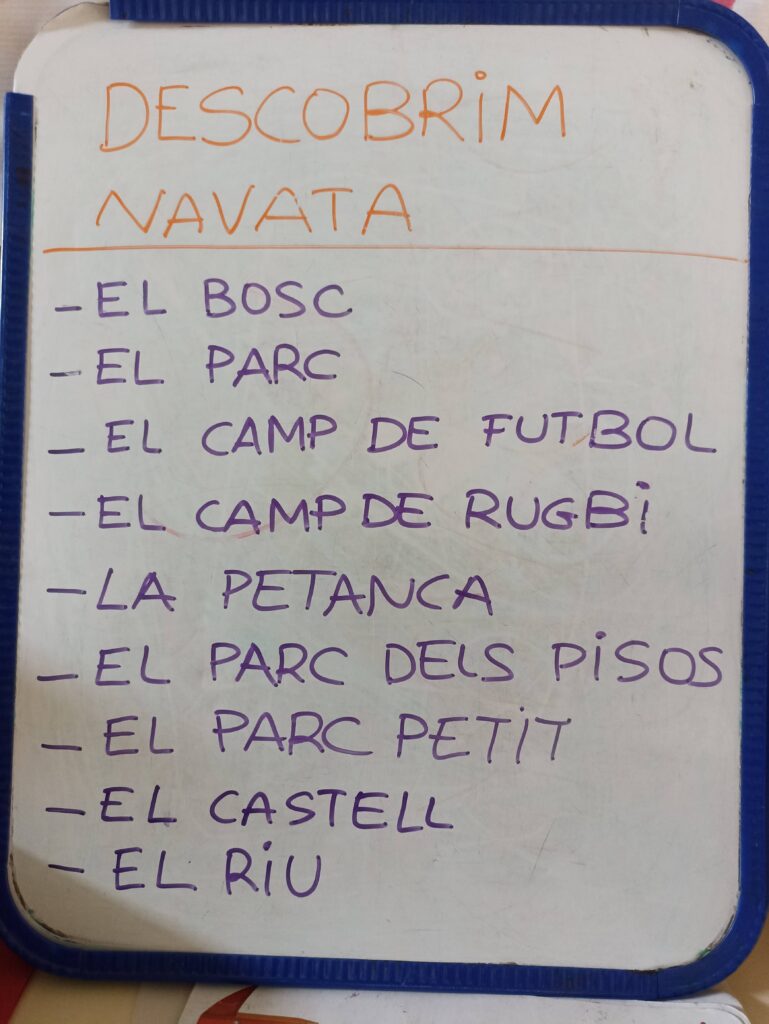 DESCOBRiM
NAVATA
- EL BOSC
- EL PARC
- EL CAMP DE FUTBOL
- EL CAMP DE RUGBi
- LA PETANCA
- EL PARC DELS PiSOS
- EL PARC PETiT
- EL CASTELL
- EL RiU